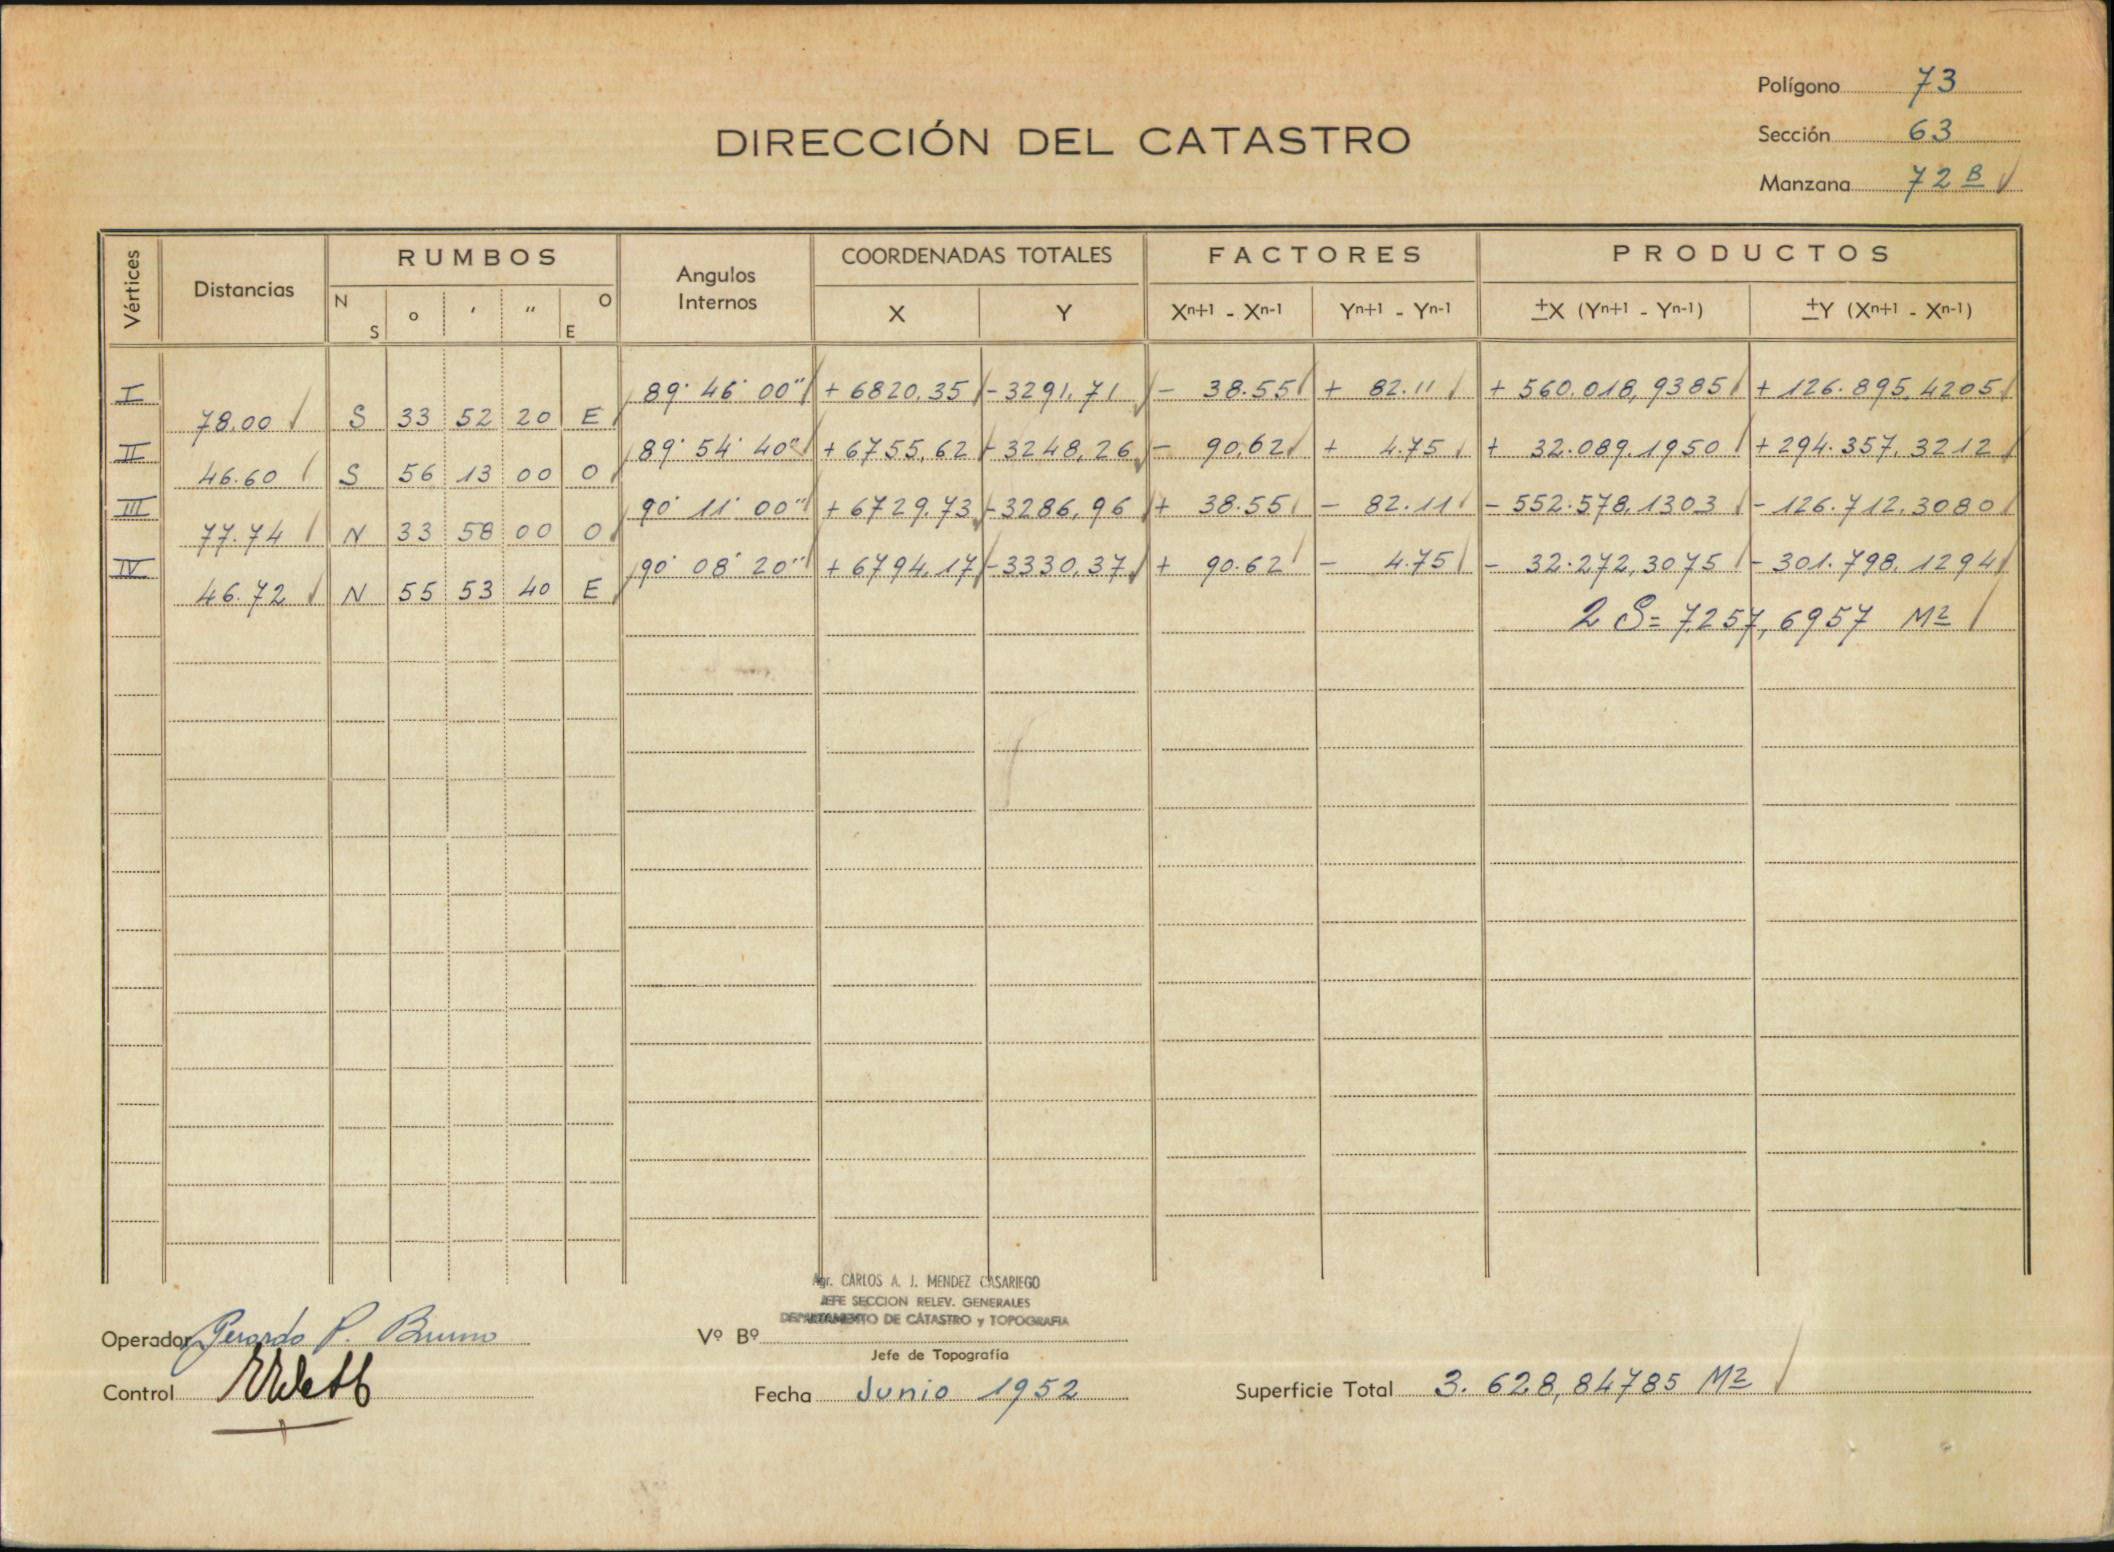 Polígono 73
DIRECCIÓN DEL CATASTRO
Sección 63
Manzana 72 B
Vértices Distancias RUMBOS Angulos Internos COORDENADAS TOTALES FACTORES PRODUCTOS
N S o ' " O E X Y Xn+1 - Xn-1 Yn+1 - Yn-1 ±X (Yn+1 - Yn-1) ±Y (Xn+1 - Xn-1)
I 89° 46' 00" + 6820,35 - 3291,71 - 38.55 + 82.11 + 560.018,9385 + 126.895,4205
78.00 S 33 52 20 E
II 89° 54' 40" + 6755,62 - 3248,26 - 90.62 + 4.75 + 32.089.1950 + 294.357,3212
46.60 S 56 13 00 O
III 90° 11' 00" + 6729,73 - 3286,96 + 38.55 - 82.11 - 552.578,1303 - 126.712,3080
77.74 N 33 58 00 O
IV 90° 08' 20" + 6794,17 - 3330,37 + 90.62 - 4.75 - 32.272,3075 - 301.798,1294
46.72 N 55 53 40 E
2 S = 7257,6957 M2
Agr. CARLOS A. J. MENDEZ CASARIEGO
JEFE SECCION RELEV. GENERALES
DEPARTAMENTO DE CATASTRO y TOPOGRAFIA
Operador Gerardo P. Bruno
Vº Bº
Jefe de Topografía
Control
Fecha Junio 1952
Superficie Total 3.628,84785 M2